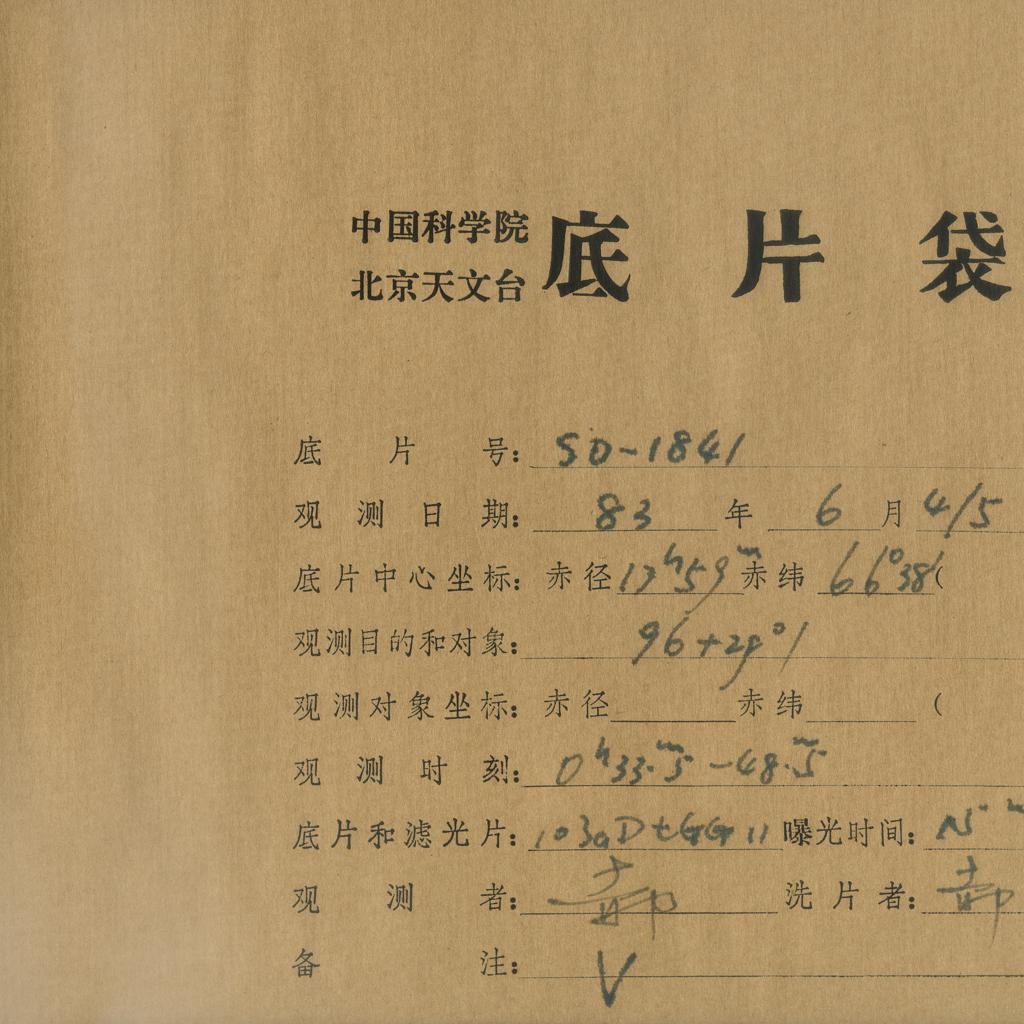 中国科学院
北京天文台
底片袋
底片号：SD-1841
观测日期：83年6月4/5
底片中心坐标：赤径17ʰ59ᵐ赤纬66°38′(
观测目的和对象：96+29°1
观测对象坐标：赤径 赤纬 (
观测时刻：0ʰ33.ᵐ5-48.ᵐ5
底片和滤光片：103aD+GG11 曝光时间：15ᵐ
观测者：郝 洗片者：郝
备注：V